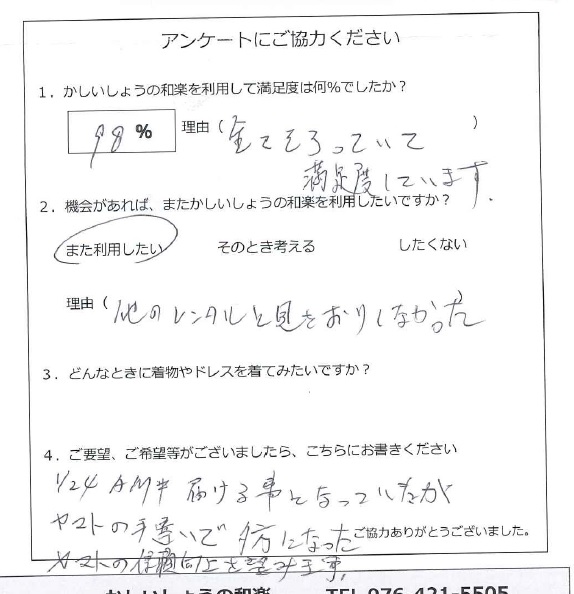 アンケートにご協力ください
1．かしいしょうの和楽を利用して満足度は何％でしたか？
98 % 理由（全てそろっていて）
満足度しています.
2．機会があれば、またかしいしょうの和楽を利用したいですか？
また利用したい そのとき考える したくない
理由（他のレンタルと見きおりしなかった）
3．どんなときに着物やドレスを着てみたいですか？
4．ご要望、ご希望等がございましたら、こちらにお書きください
1/24 AM中 届ける事となっていたが
ヤマトの手違いで 夕方になった
ご協力ありがとうございました。
ヤマトの信頼向上を望みます。
かしいしょうの和楽 TEL 076-421-5505